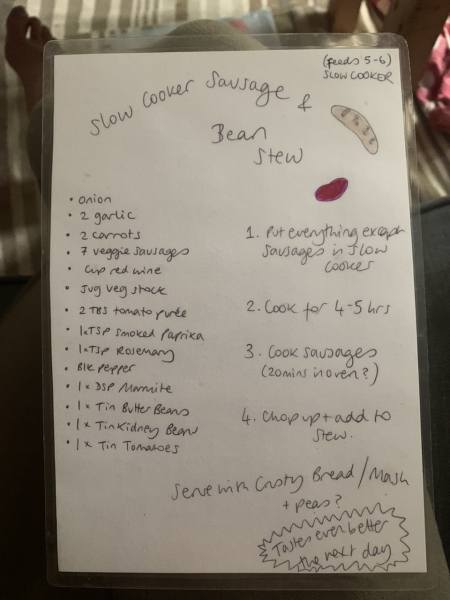 (feeds 5-6)
SLOW COOKER
Slow Cooker Sausage &
Bean
Stew
• onion
• 2 garlic
• 2 carrots
• 7 veggie sausages
• Cup red wine
• Jug veg stock
• 2 TBS tomato purée
• 1xTSP Smoked Paprika
• 1xTSP Rosemary
• Blk pepper
• 1 x DSP Marmite
• 1 x Tin Butter Beans
• 1 x Tin Kidney Beans
• 1 x Tin Tomatoes
1. Put everything except
Sausages in Slow
Cooker
2. Cook for 4-5 hrs
3. Cook sausages
(20mins in oven?)
4. Chop up + add to
Stew.
Serve with Crusty Bread / Mash
+ peas?
Tastes even better
the next day